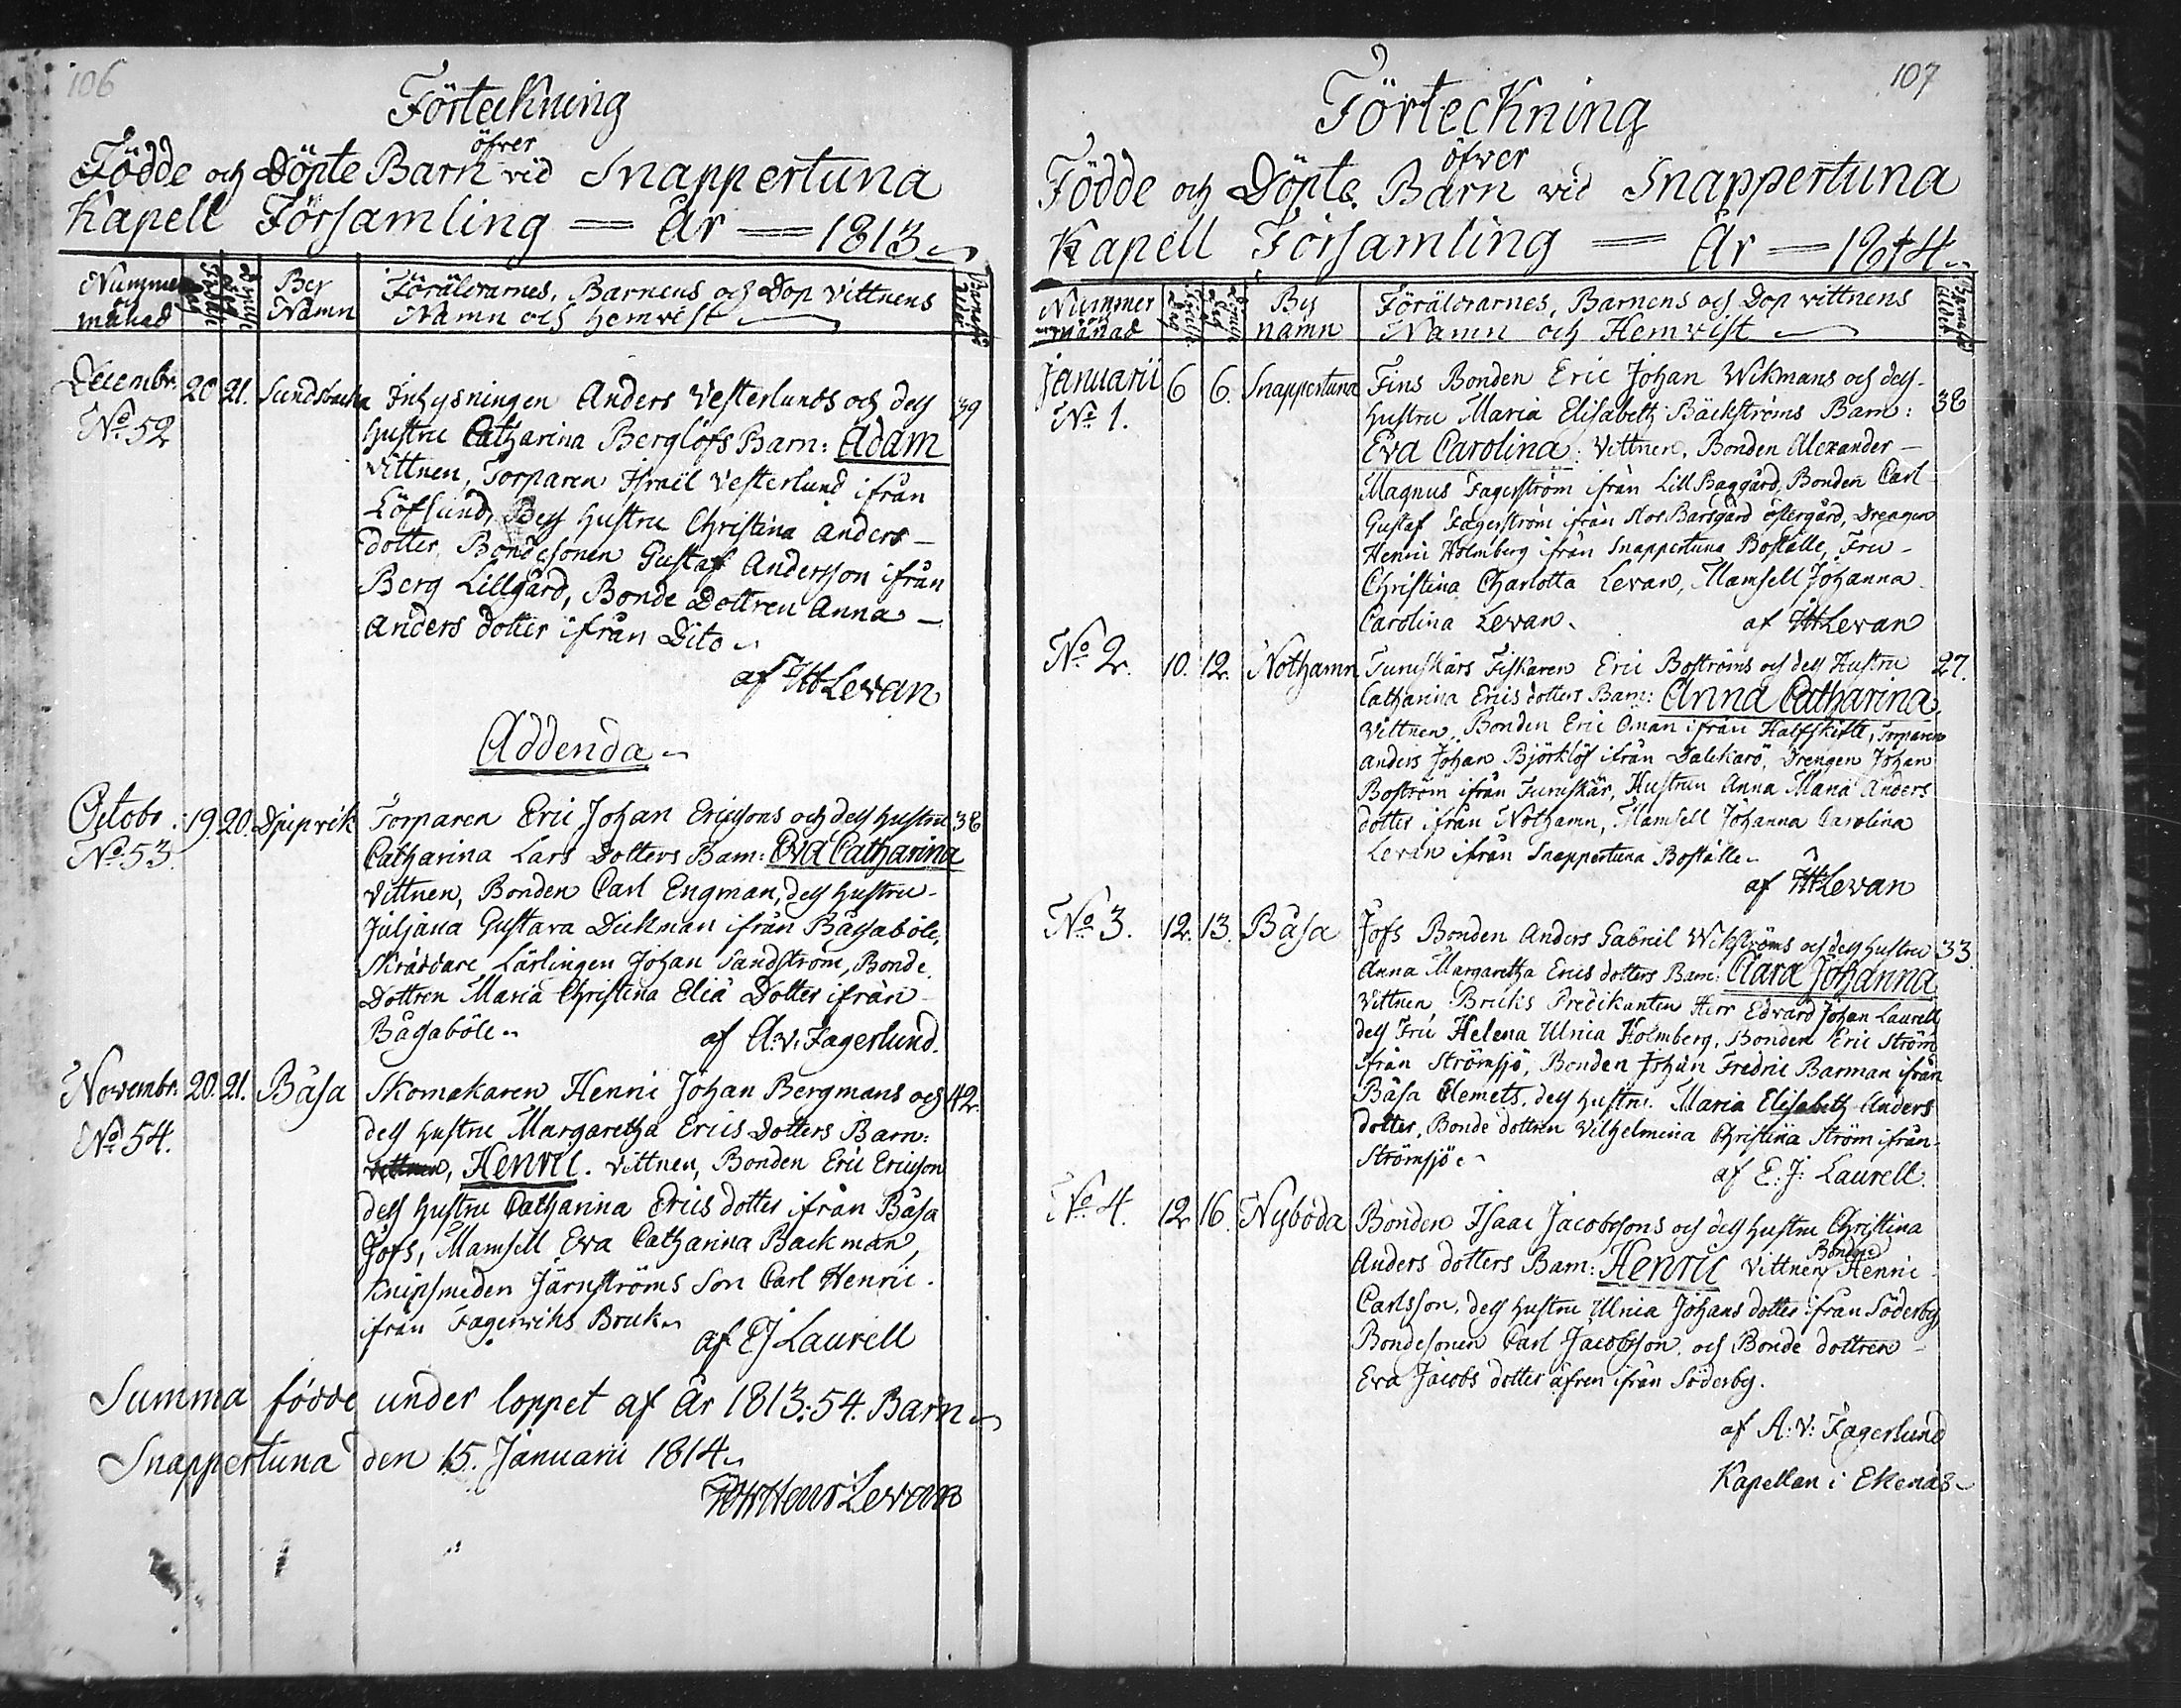 106
Förteckning
öfver
Födde och Döpte Barn vid Snappertuna
Kapell Församling — år — 1813
Nummer
och
månad
Födde
dag
Döpelse
dag
Bys
Namn
Föräldrarnes, Barnens och Dop Vittnens
Namn och hemvist
Decembr. 20 21. Sundsbacka Inhysningen Anders Vesterlunds och dess 39
No. 52 hustru Catharina Berglöfs Barn: Adam
Vittnen, Torparen Israel Vesterlund ifrån
Löfsund, Dess hustru Christina Anders-
dotter, Bondesonen Gustaf Andersson ifrån
Berg Lillgård, Bonde Dottren Anna
Anders dotter ifrån Dito
af JH Levan
Addenda
Octobr. 19. 20. Djupvik Torparen Eric Johan Ericssons och dess hustru 38
No. 53. Catharina Lars Dotters Barn: Eva Catharina
Vittnen, Bonden Carl Engman, dess hustru
Juljana Gustava Dickman ifrån Bågaböle,
Skräddare Lärlingen Johan Sandström, Bonde
Dottren Maria Christina Eliæ Dotter ifrån
Bågaböle
af A. V. Fagerlund.
Novembr. 20. 21. Båsa Skomakaren Henric Johan Bergmans och 42.
No. 54. dess hustru Margaretha Erics Dotters Barn:
Vittnen, Henric. Vittnen, Bonden Eric Ericsson
dess hustru Catharina Erics dotter ifrån Båsa
Jofs, Mamsell Eva Catharina Backman,
Knipsmeden Järnströms Son Carl Henric
ifrån Fagerviks Bruk
af EJ Laurell
Summa födde under loppet af år 1813: 54. Barn
Snappertuna den 15. Januarii 1814
Henr Levan
107
Förteckning
öfver
Födde och Döpte Barn vid Snappertuna
Kapell Församling — År — 1814
Nummer
och
månad
Bys
namn
Föräldrarnes, Barnens och Dop vittnens
Namn och Hemvist
Januarii 6 6. Snappertuna Fins Bonden Eric Johan Wikmans och dess
No 1. hustru Maria Elisabeth Bäckströms Barn: 38
Eva Carolina: Vittnen, Bonden Alexander
Magnus Fagerström ifrån Lill Baggård, Bonden Carl
Gustaf Fagerström ifrån Stor Barsgård östergård, Drengen
Henric Holmberg ifrån Snappertuna Boställe, Fru
Christina Charlotta Levan, Mamsell Johanna
Carolina Levan.
af JH Levan
No 2. 10. 12. Nothamn Furuskärs Fiskaren Eric Boströms och dess Hustru 27.
Catharina Erics dotters Barn: Anna Catharina,
Vittnen, Bonden Eric Öman ifrån Halfskifte, Torparen
Anders Johan Björklöf ifrån Dalckarö, Drengen Johan
Boström ifrån Furuskär, Hustrun Anna Maria Anders
dotter ifrån Nothamn, Mamsell Johanna Carolina
Levan ifrån Snappertuna Boställe
af JH Levan
No 3. 12. 13. Båsa Jofs Bonden Anders Gabriel Wikströms och dess hustru 33.
Anna Margaretha Erics dotters Barn: Clara Johanna
Vittnen Bruks Predikanten Herr Edvard Johan Laurell
dess Fru Helena Ulrica Holmberg, Bonden Eric Ström
ifrån Strömsjö, Bonden Johan Fredric Barman ifrån
Båsa Clemets, dess hustru Maria Elisabeth Anders
dotter, Bonde dottren Vilhelmina Christina Ström ifrån
Strömsjö
af E. J. Laurell.
No 4. 12 16. Nyboda Bonden Isaac Jacobssons och dess hustru Christina
Bonden
Anders dotters Barn: Henric Vittnen Henric
Carlsson, dess hustru Ulrica Johans dotter ifrån Söderby,
Bondesonen Carl Jacobsson och Bonde dottren
Eva Jacobs dotter äfven ifrån Söderby.
af A. V. Fagerlund
Kapellan i Ekenäs